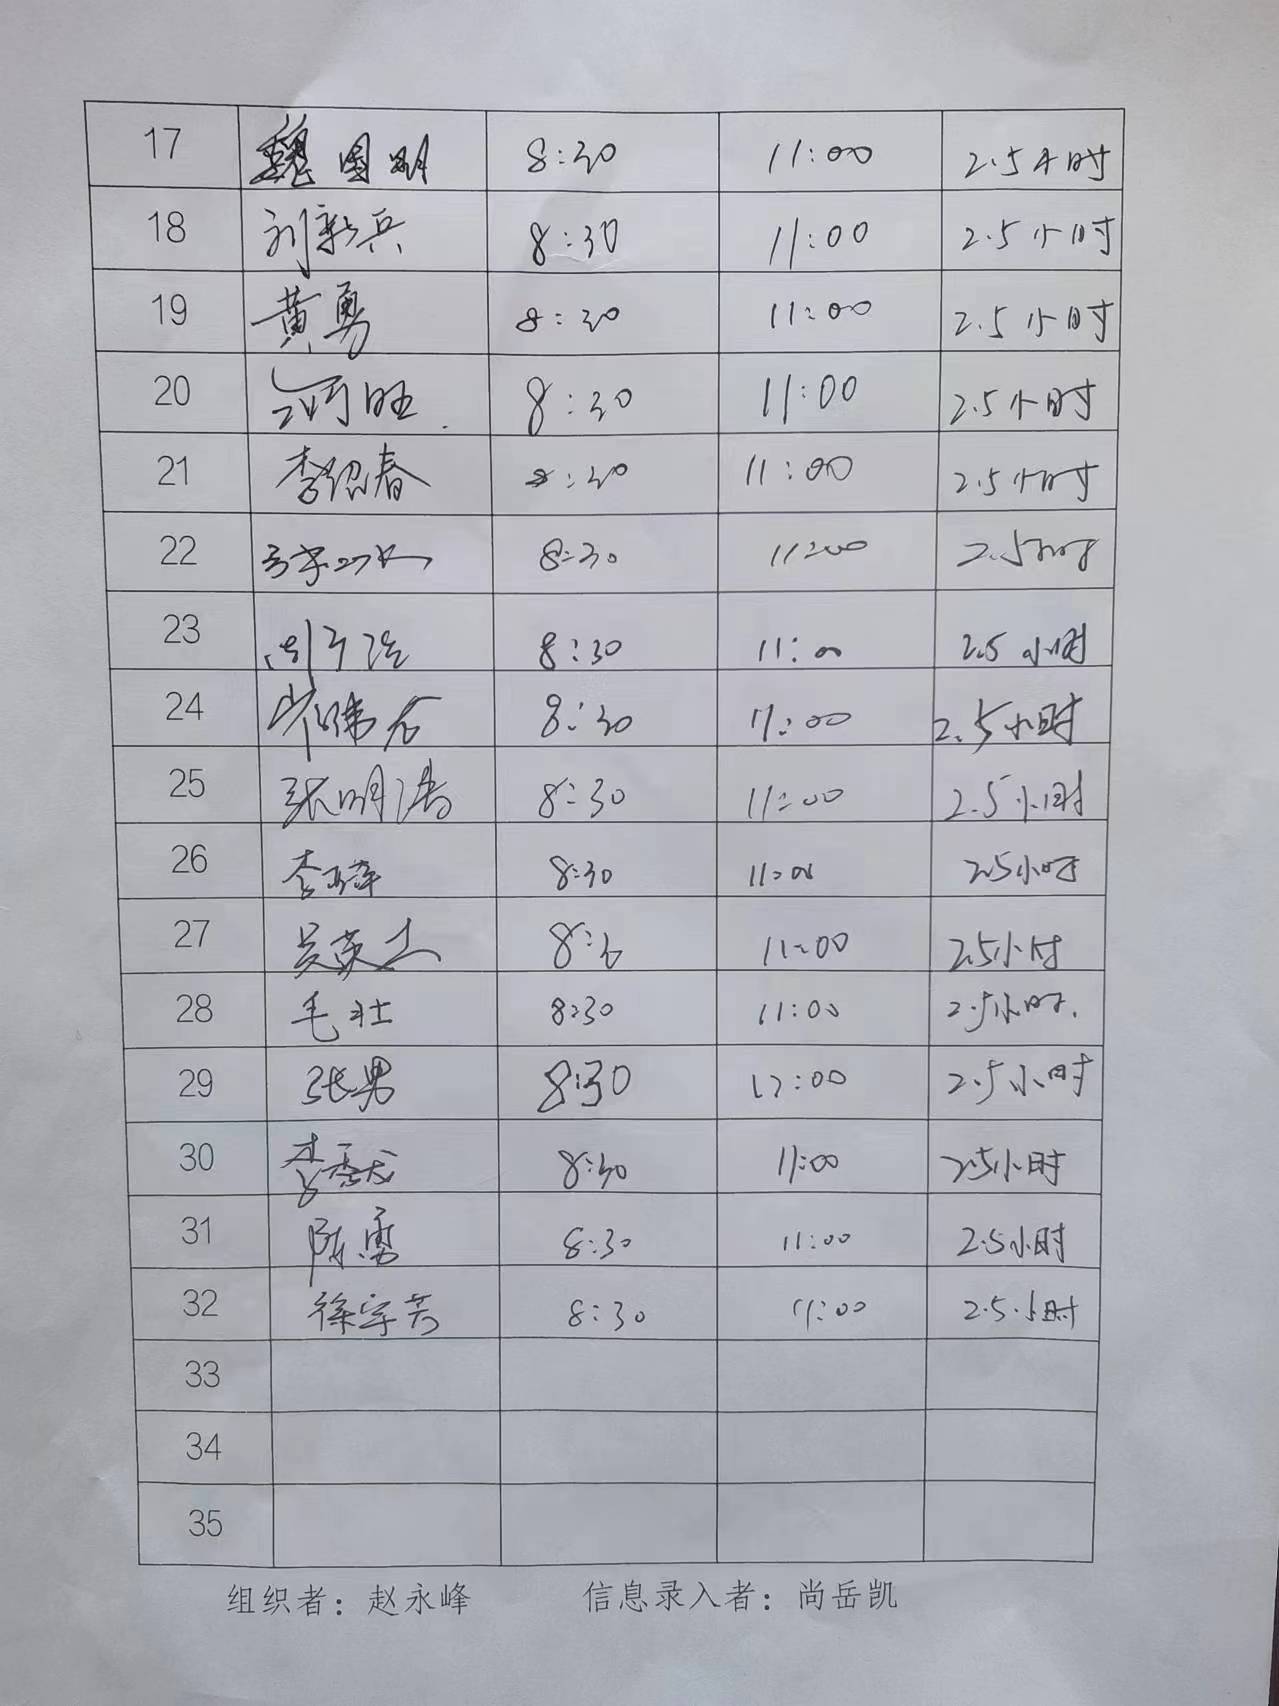 17 魏国明 8:30 11:00 2.5小时
18 刘新兵 8:30 11:00 2.5小时
19 黄勇 8:30 11:00 2.5小时
20 旺 8:30 11:00 2.5小时
21 李绍春 8:30 11:00 2.5小时
22 8:30 11:00 2.5小时
23 8:30 11:00 2.5小时
24 8:30 11:00 2.5小时
25 张明涛 8:30 11:00 2.5小时
26 李 8:30 11:00 2.5小时
27 吴英杰 8:30 11:00 2.5小时
28 毛壮 8:30 11:00 2.5小时.
29 张男 8:30 11:00 2.5小时
30 李 8:30 11:00 2.5小时
31 陈勇 8:30 11:00 2.5小时
32 徐宗芳 8:30 11:00 2.5小时
33
34
35
组织者：赵永峰 信息录入者：尚岳凯